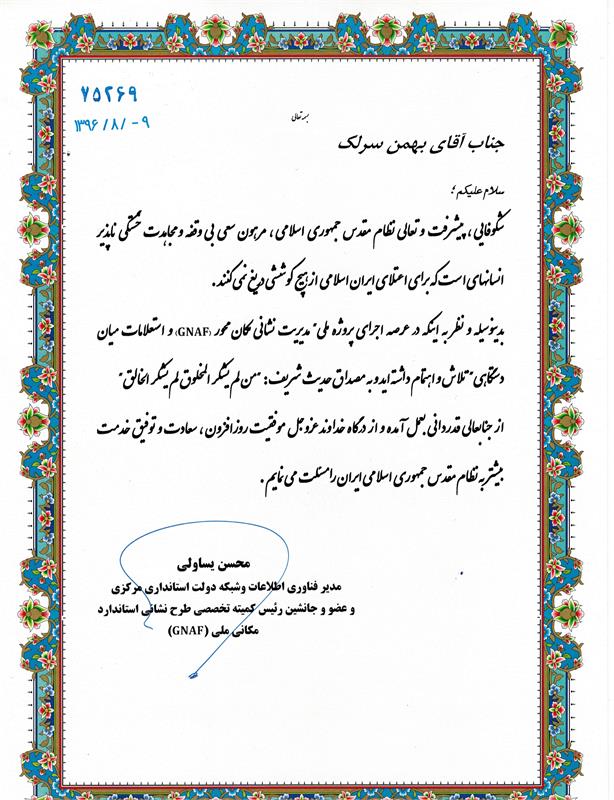 ۷۵۲۶۹
۱۳۹۶/۸/-۹
بسمه تعالی
جناب آقای بهمن سرلک
سلام علیکم؛
شکوفایی ، پیشرفت و تعالی نظام مقدس جمهوری اسلامی ، مرهون سعی بی وقفه و مجاهدت خستگی ناپذیر
انسانهای است که برای اعتلای ایران اسلامی از هیچ کوششی دریغ نمی کنند .
بدینوسیله و نظر به اینکه در عرصه اجرای پروژه ملی "مدیریت نشانی مکان محور (GNAF) و استعلامات میان
دستگاهی" تلاش و اهتمام داشته اید و به مصداق حدیث شریف: "من لم یشکر المخلوق لم یشکر الخالق"
از جنابعالی قدردانی بعمل آمده و از درگاه خداوند عزوجل موفقیت روزافزون ، سعادت و توفیق خدمت
بیشتر به نظام مقدس جمهوری اسلامی ایران را مسئلت می نمایم .
محسن یساولی
مدیر فناوری اطلاعات وشبکه دولت استانداری مرکزی
و عضو و جانشین رئیس کمیته تخصصی طرح نشانی استاندارد
مکانی ملی (GNAF)